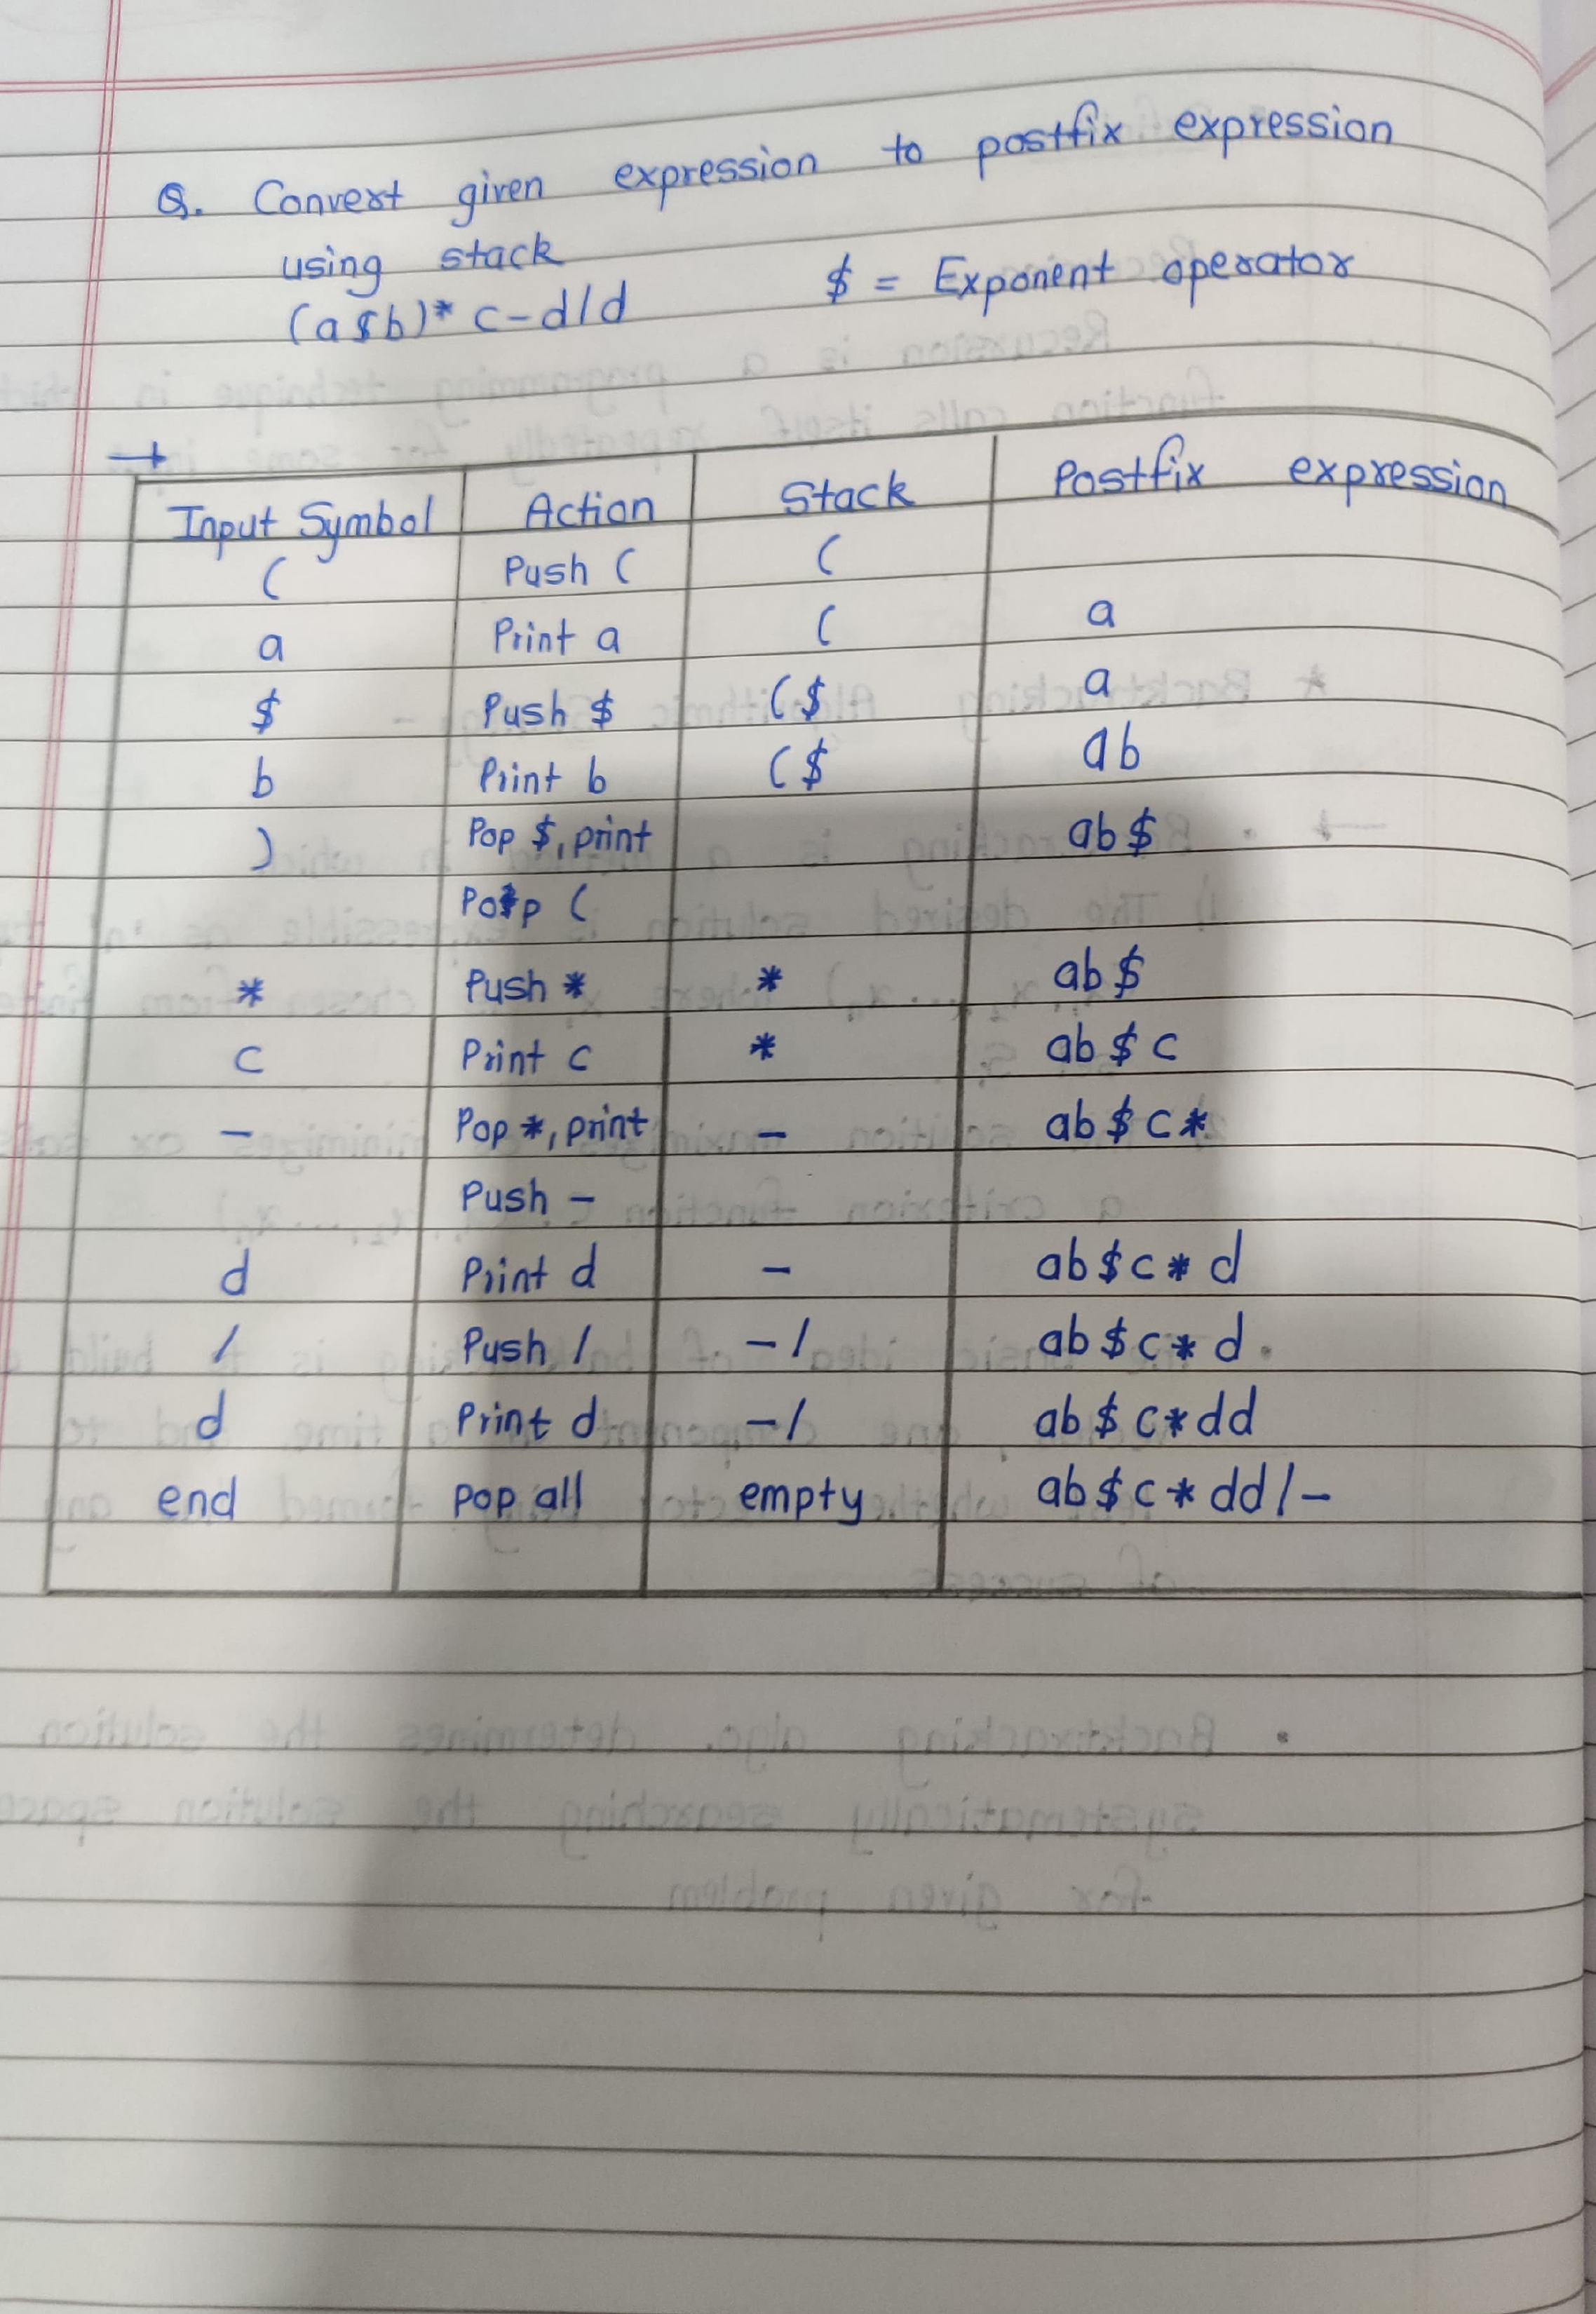 Q. Convert given expression to postfix expression
using stack
(a$b)* c-d/d $ = Exponent operator
→
Input Symbol Action Stack Postfix expression
( Push ( (
a Print a ( a
$ Push $ ($ a
b Print b ($ ab
) Pop $, print ab$
Pop (
* Push * * ab$
c Print c * ab$c
- Pop *, print - ab$c*
Push -
d Print d - ab$c*d
/ Push / -/ ab$c*d.
d Print d -/ ab$c*dd
end pop all empty ab$c*dd/-